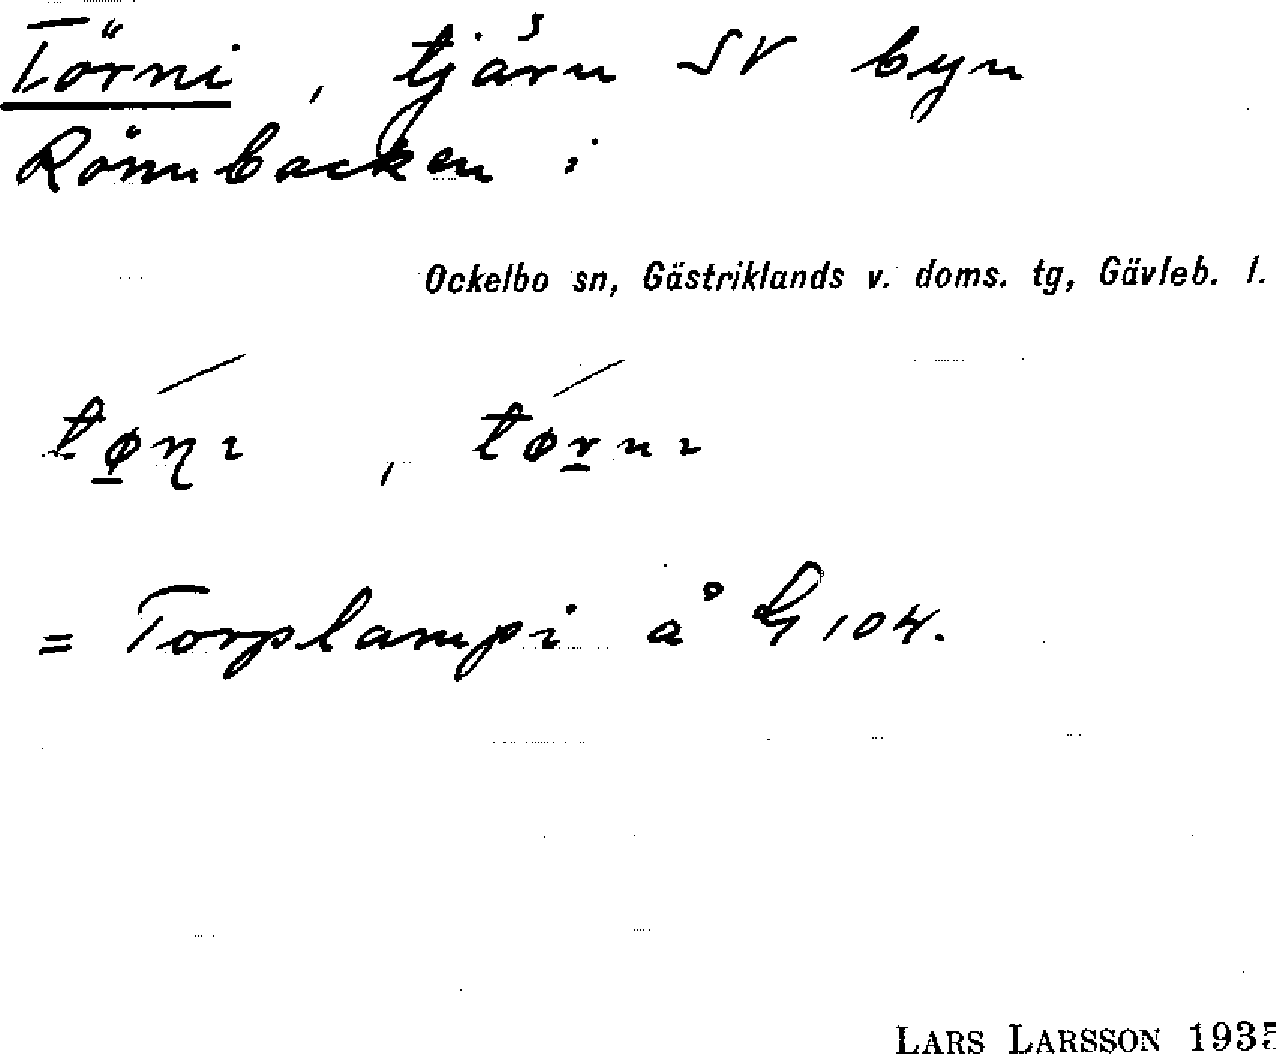 Törni, tjärn SV byn
Rönnbacken i
Ockelbo sn, Gästriklands v. doms. tg, Gävleb. l.
tø̲ɳı, tørnı
= Torplampi å G 104.
LARS LARSSON 1935